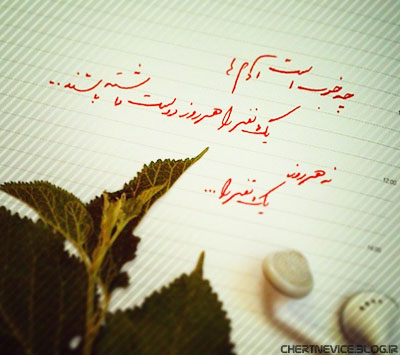 چه خوب است آدم ها
یک نفر را هر روز دوست داشته باشند...
نه هر روز
یک نفر را...
12:00
14:00
CHERTNEVICE.BLOG.IR